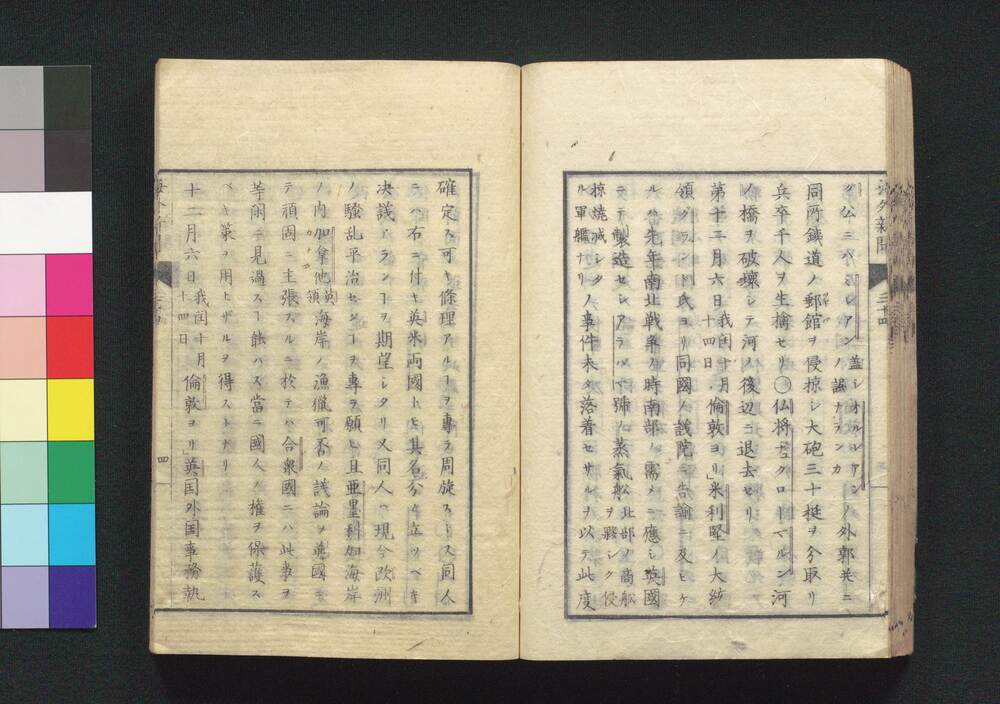 海外新聞
同所鉄道ノ郵館ヲ侵掠シ大砲三十挺ヲ分取リ
兵卒千人ヲ生擒セリ〇仏将 河
ノ橋ヲ破壊シテ河ノ後辺ニ退去セリ
第十二月六日我国十月十四日倫敦ヨリ」米利堅ノ大統
領グラント氏ヨリ同國ノ議院ニ告諭ニ及ヒケ
ルハ先年南北戦争ノ時南部ノ需メニ應シ英國
ニテ製造セシアラバマ號ノ蒸氣舩北部ノ商舩ヲ夥シク侵掠焼滅シタル軍艦ナリ
ノ事件未タ落着セサルヲ以テ此度
確定ス可キ條理アルヿヲ專ラ周旋ストス同人
决議アランヿヲ期望シタリ又同人ハ現今欧洲
ノ騒乱平治センヿヲ専ラ願ヒ且亜墨利加海岸
ノ内加拿他英領海岸ノ漁獵可否ノ議論ヲ英國ニ
テ頑固ニ主張スルニ於テハ合衆國ニハ此事ヲ
等閑ニ見過スヿ能ハス當ニ國人ノ権ヲ保護ス
ベキ策ヲ用ヒザルヲ得ストナリ
十二月六日我国十月十四日倫敦ヨリ」英国外国事務執
四